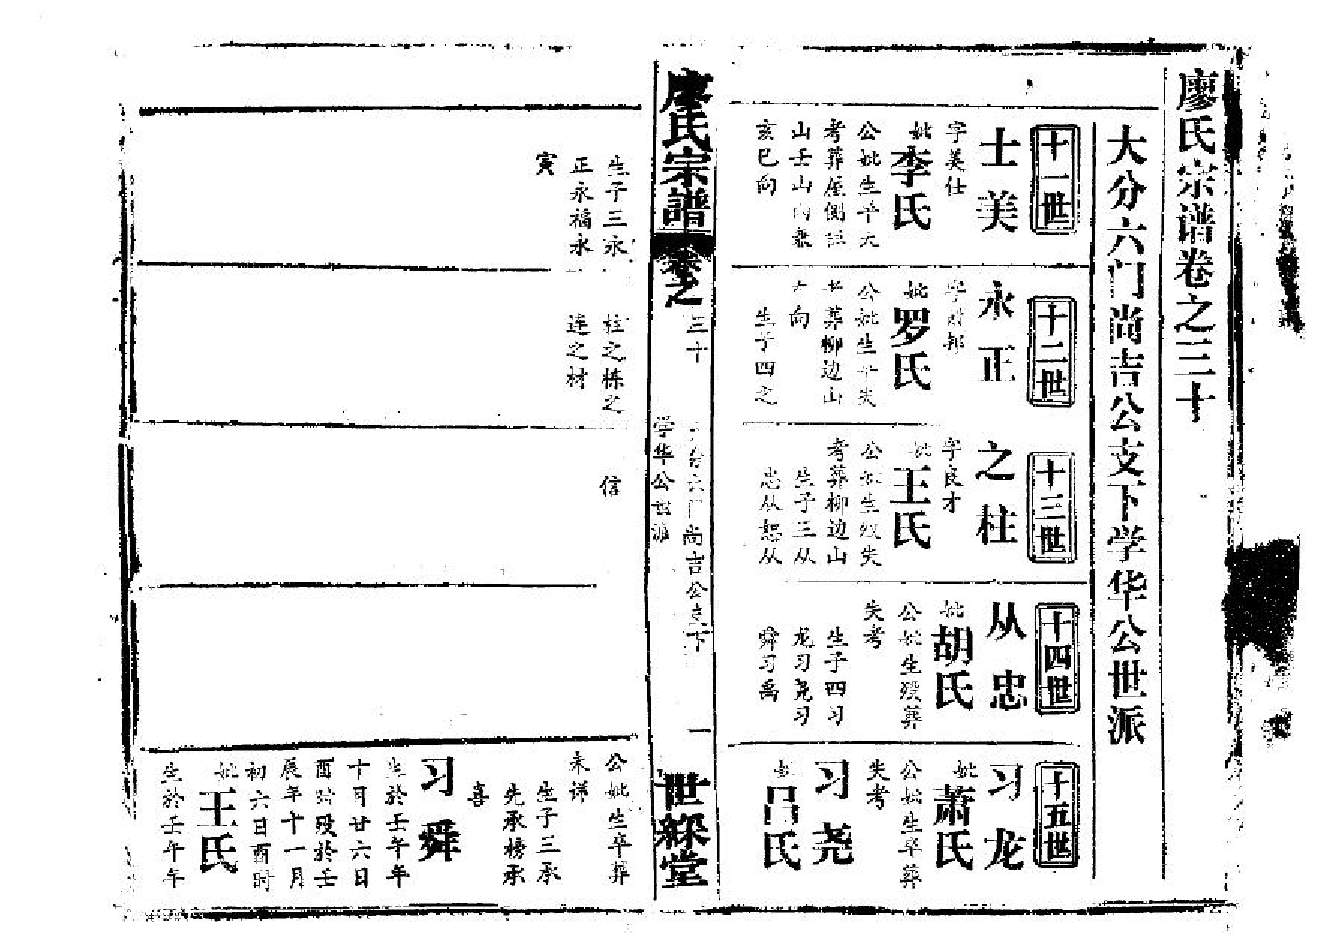 廖氏宗谱卷之三十
大分六门尚吉公支下学华公世派
十一世
士美
字美仕
妣李氏
公妣生卒失
考葬屋侧
山壬山内兼
亥巳向
十二世
永正
妣罗氏
公妣生卒失
葬柳边山
向
生子四之
十三世
之柱
字良才
妣王氏
公妣生殁失
考葬柳边山
生子三从
忠从恕从
十四世
从忠
妣胡氏
公妣生殁葬
失考
生子四习
龙习尧习
舜习禹
十五世
习龙
妣萧氏
公妣生卒葬
失考
习尧
妣吕氏
廖氏宗譜
卷之
三十
六门尚吉公支下
学华公世派
一
世綵堂
生子三永
正永福永
寅
柱之栋之
连之材
信
公妣生卒葬
未详
生子三承
先承榜承
喜
习舜
生於壬午年
十月廿六日
酉时殁於壬
辰年十一月
初六日酉时
妣王氏
生於壬午年